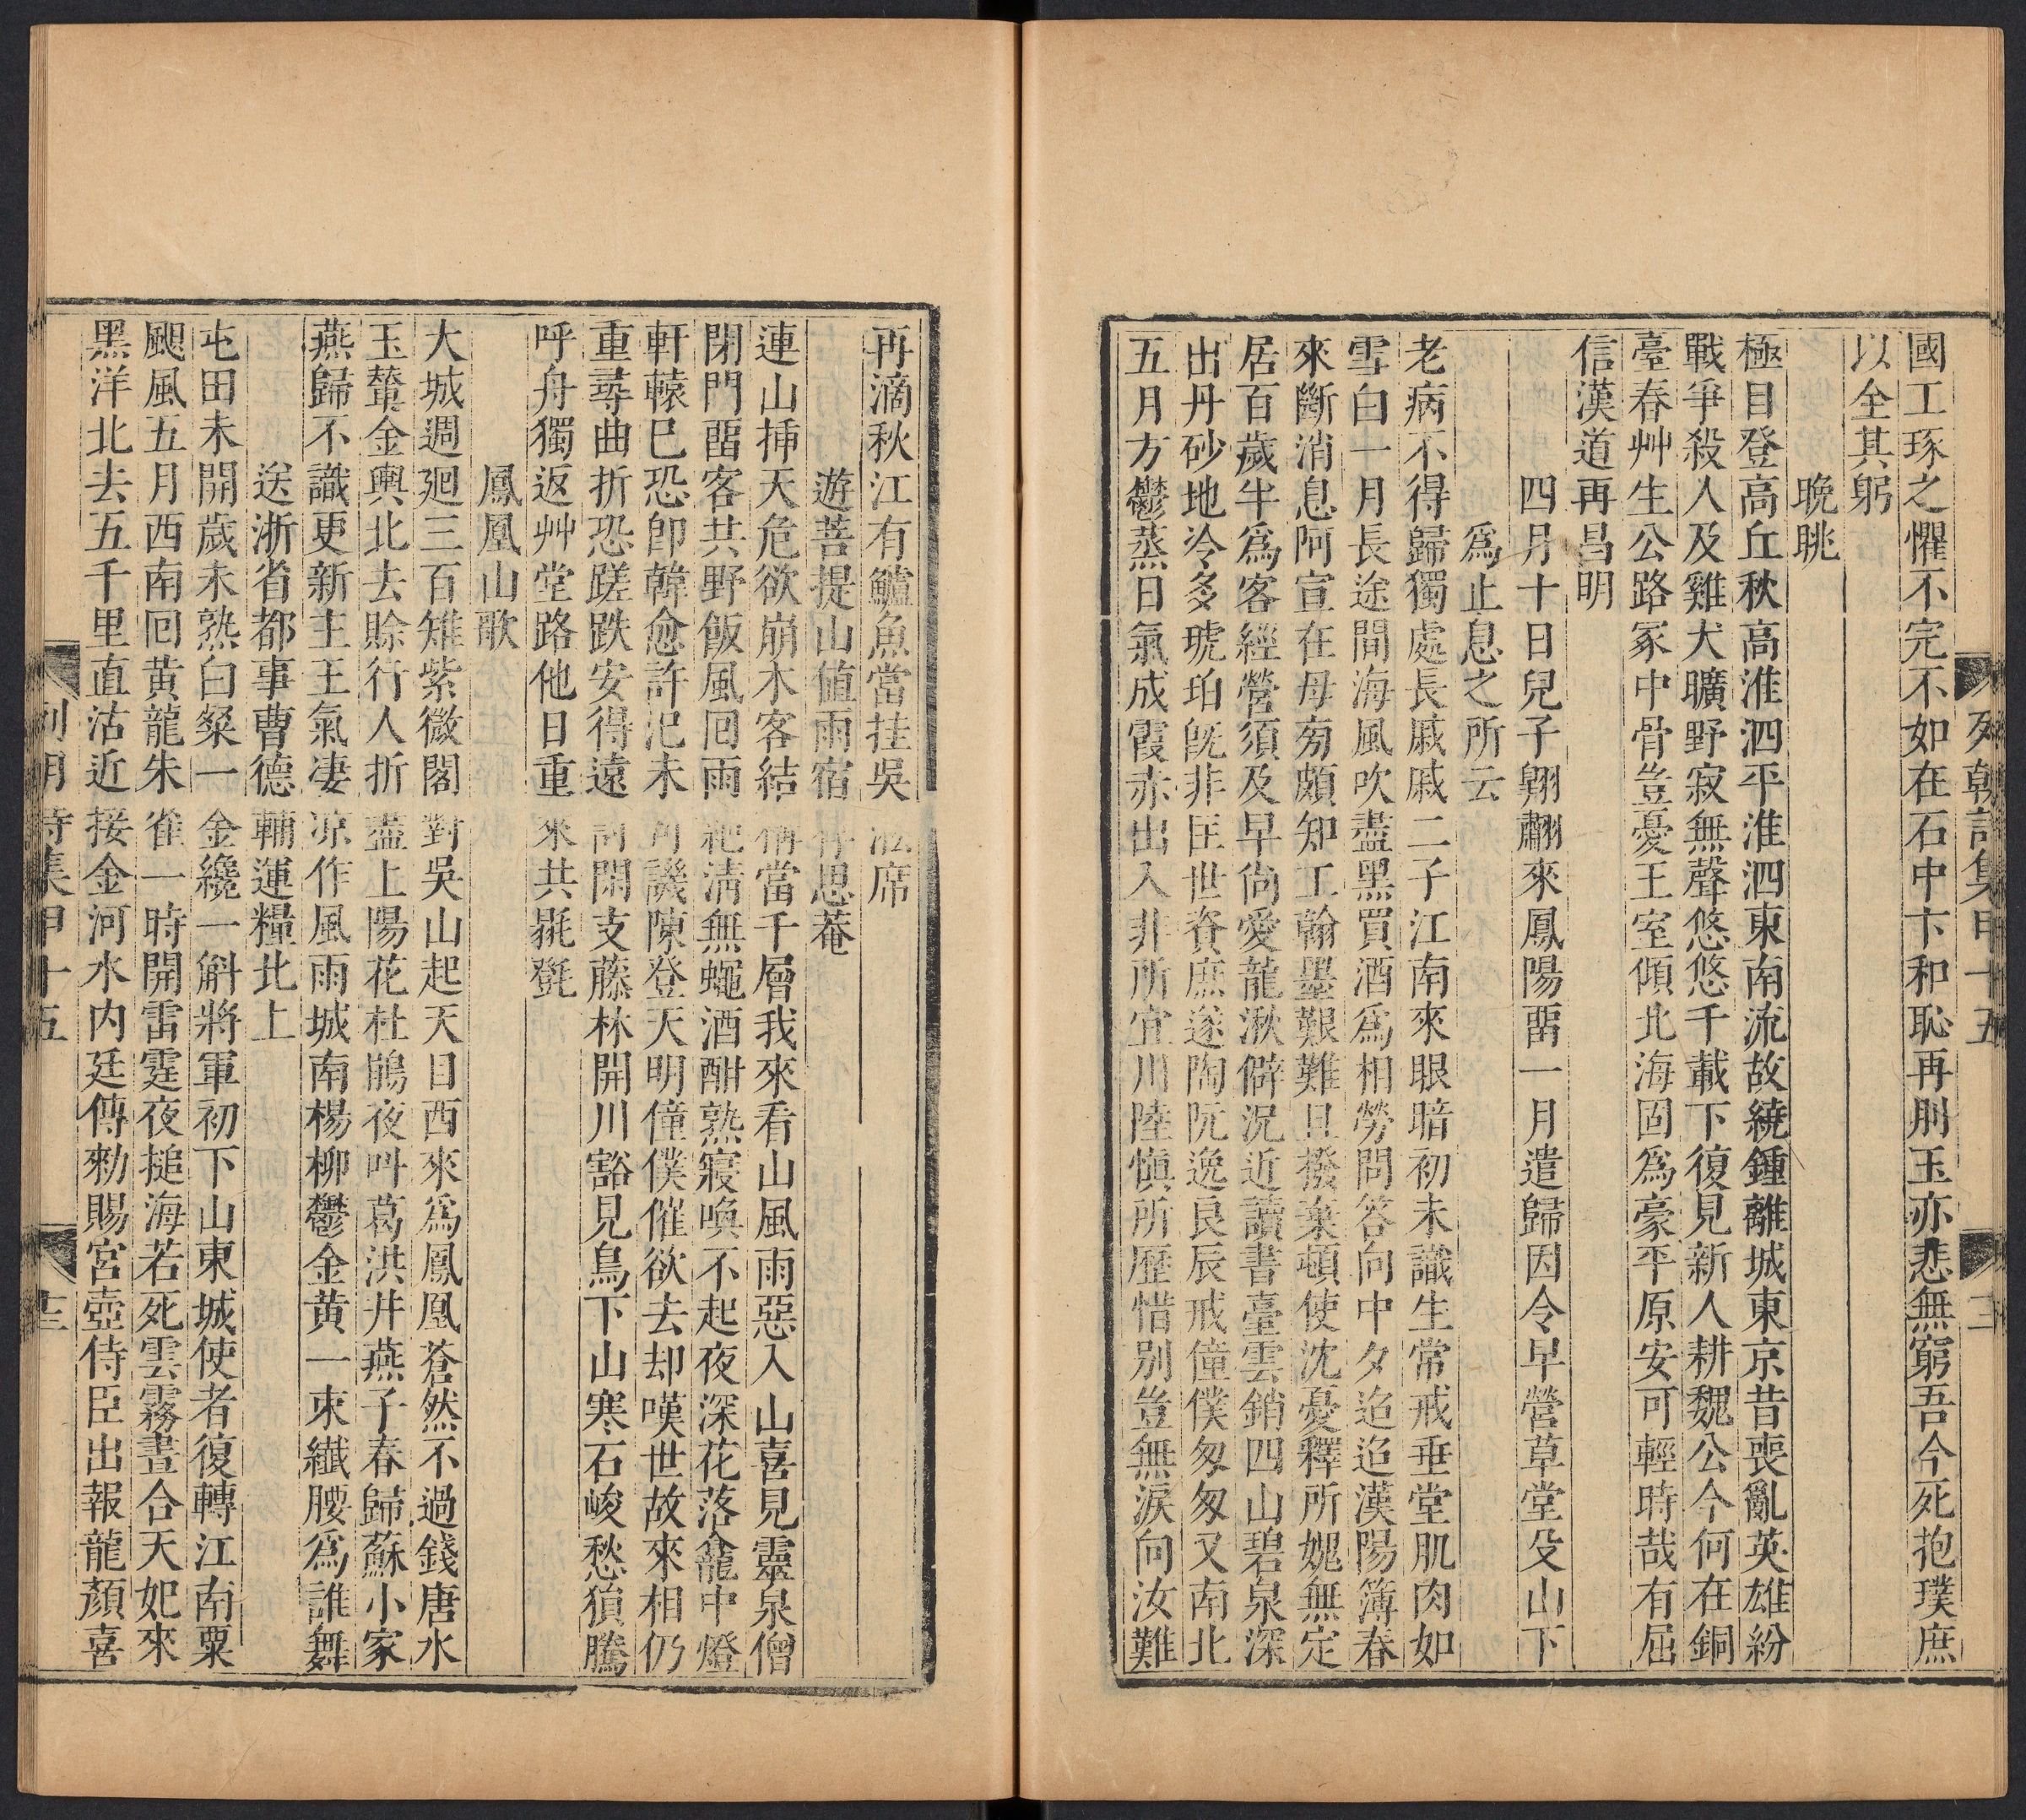 列朝詩集甲十五
二
國工琢之懼不完不如在石中卞和恥再刖玉亦悲無窮吾今死抱璞庶
以全其躬
晚眺
極目登高丘秋高淮泗平淮泗東南流故繞鍾離城東京昔喪亂英雄紛
戰爭殺人及雞犬曠野寂無聲悠悠千載下復見新人耕魏公今何在銅
臺春艸生公路冢中骨豈憂王室傾北海固爲豪平原安可輕時哉有屈
信漢道再昌明
四月十日兒子翺翽來鳳陽畱一月遣歸因令早營草堂殳山下
爲止息之所云
老病不得歸獨處長戚戚二子江南來眼暗初未識生常戒垂堂肌肉如
雪白十月長途間海風吹盡黑買酒爲相勞問答向中夕迨迨漢陽簿春
來斷消息阿宣在母旁頗知工翰墨艱難且撥棄頓使沈憂釋所媿無定
居百歲半爲客經營須及早尙愛龍湫僻況近讀書臺雲銷四山碧泉深
出丹砂地冷多琥珀旣非匡世資庶遂陶阮逸良辰戒僮僕匆匆又南北
五月方鬱蒸日氣成霞赤出入非所宜川陸愼所歷惜別豈無淚向汝難
再滴秋江有鱸魚當挂吳淞席
遊菩提山値雨宿 思菴
連山揷天危欲崩木客結 當千層我來看山風雨惡入山喜見靈泉僧
閉門畱客共野飯風回雨 淸無蠅酒酣熟寢喚不起夜深花落龕中燈
軒轅已恐卽韓愈許汜未 譏陳登天明僮僕催欲去却嘆世故來相仍
重尋曲折恐蹉跌安得遠 閑支藤林開川豁見鳥下山寒石峻愁猿騰
呼舟獨返艸堂路他日重來共毾㲪
鳳凰山歌
大城週廻三百雉紫微閣對吳山起天目西來爲鳳凰蒼然不過錢唐水
玉輦金輿北去賖行人折盡上陽花杜鵑夜叫葛洪井燕子春歸蘇小家
燕歸不識更新主王氣凄凉作風雨城南楊柳鬱金黄一束纖腰爲誰舞
送浙省都事曹德輔運糧北上
屯田未開歲未熟白粲一金纔一斛將軍初下山東城使者復轉江南粟
颶風五月西南回黄龍朱雀一時開雷霆夜搥海若死雲霧晝合天妃來
黑洋北去五千里直沽近接金河水内廷傳勑賜宮壺侍臣出報龍顏喜
列朝詩集甲十五